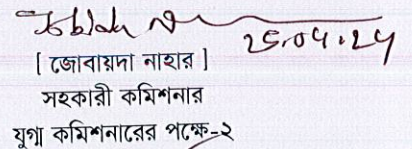 25.04.24
[ জোবায়দা নাহার ]
সহকারী কমিশনার
যুগ্ম কমিশনারের পক্ষে-২